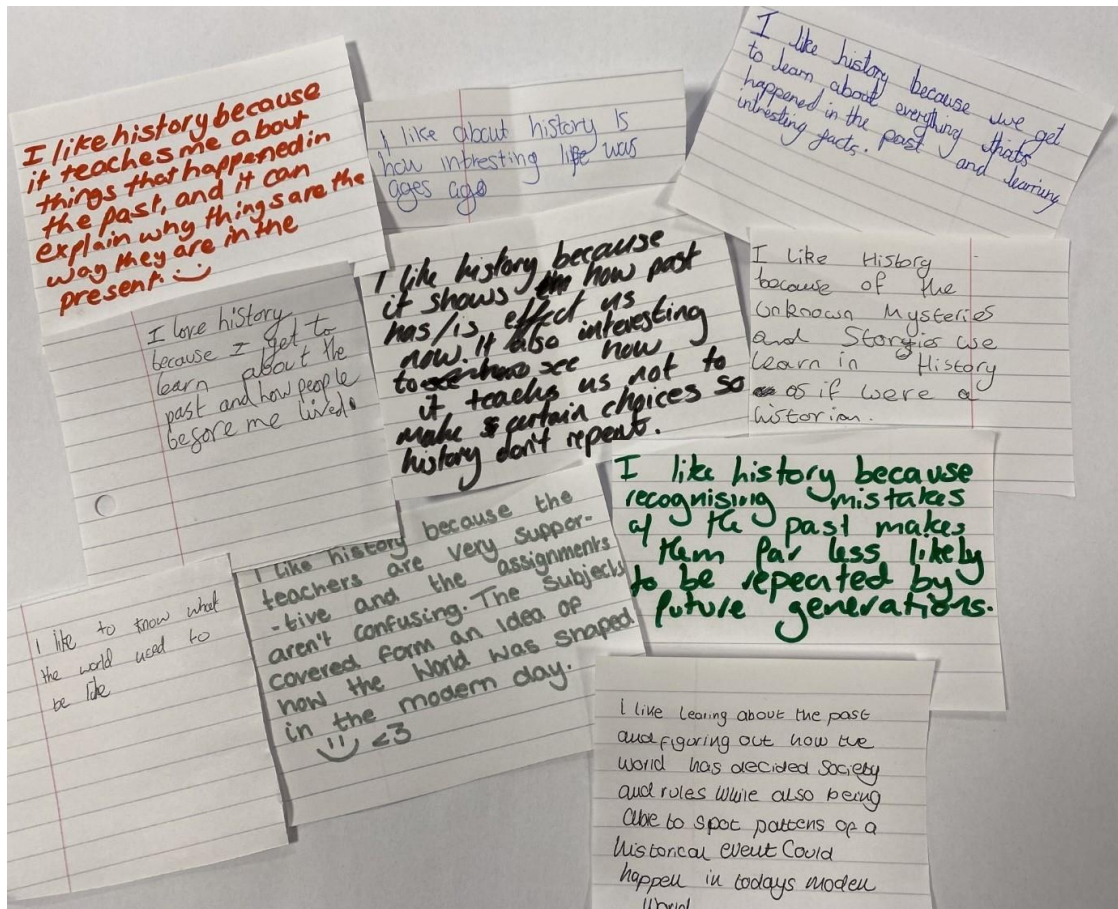 I like history because
it teaches me about
things that happened in
the past, and it can
explain why things are the
way they are in the
present
I like about history is
how intresting life was
ages ago
I like history because we get
to learn about everything thats
happened in the past and learning
intresting facts.
I love history
because I get to
learn about the
past and how people
before me lived.
I like history because
it shows how past
has/is effect us
now. It also interesting
to see how
it teachs us not to
make certain choices so
history don't repeat.
I like History
because of the
Unknown Mysteries
and Storgies we
learn in History
as if were a
historian.
I like history because
recognising mistakes
of the past makes
them far less likely
to be repeated by
future generations.
I like to know what
the world used to
be like
I like history because the
teachers are very suppor-
-tive and the assignments
aren't confusing. The subjects
covered form an idea of
how the world was shaped
in the modern day.
<3
I like learing about the past
and figuring out how the
world has decided society
and rules while also being
able to spot pattens of a
historical event could
happen in todays moden
world